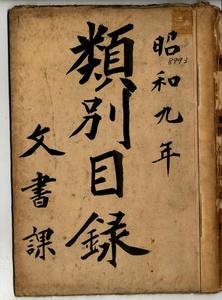 昭和九年
8993
類別目録
文書課